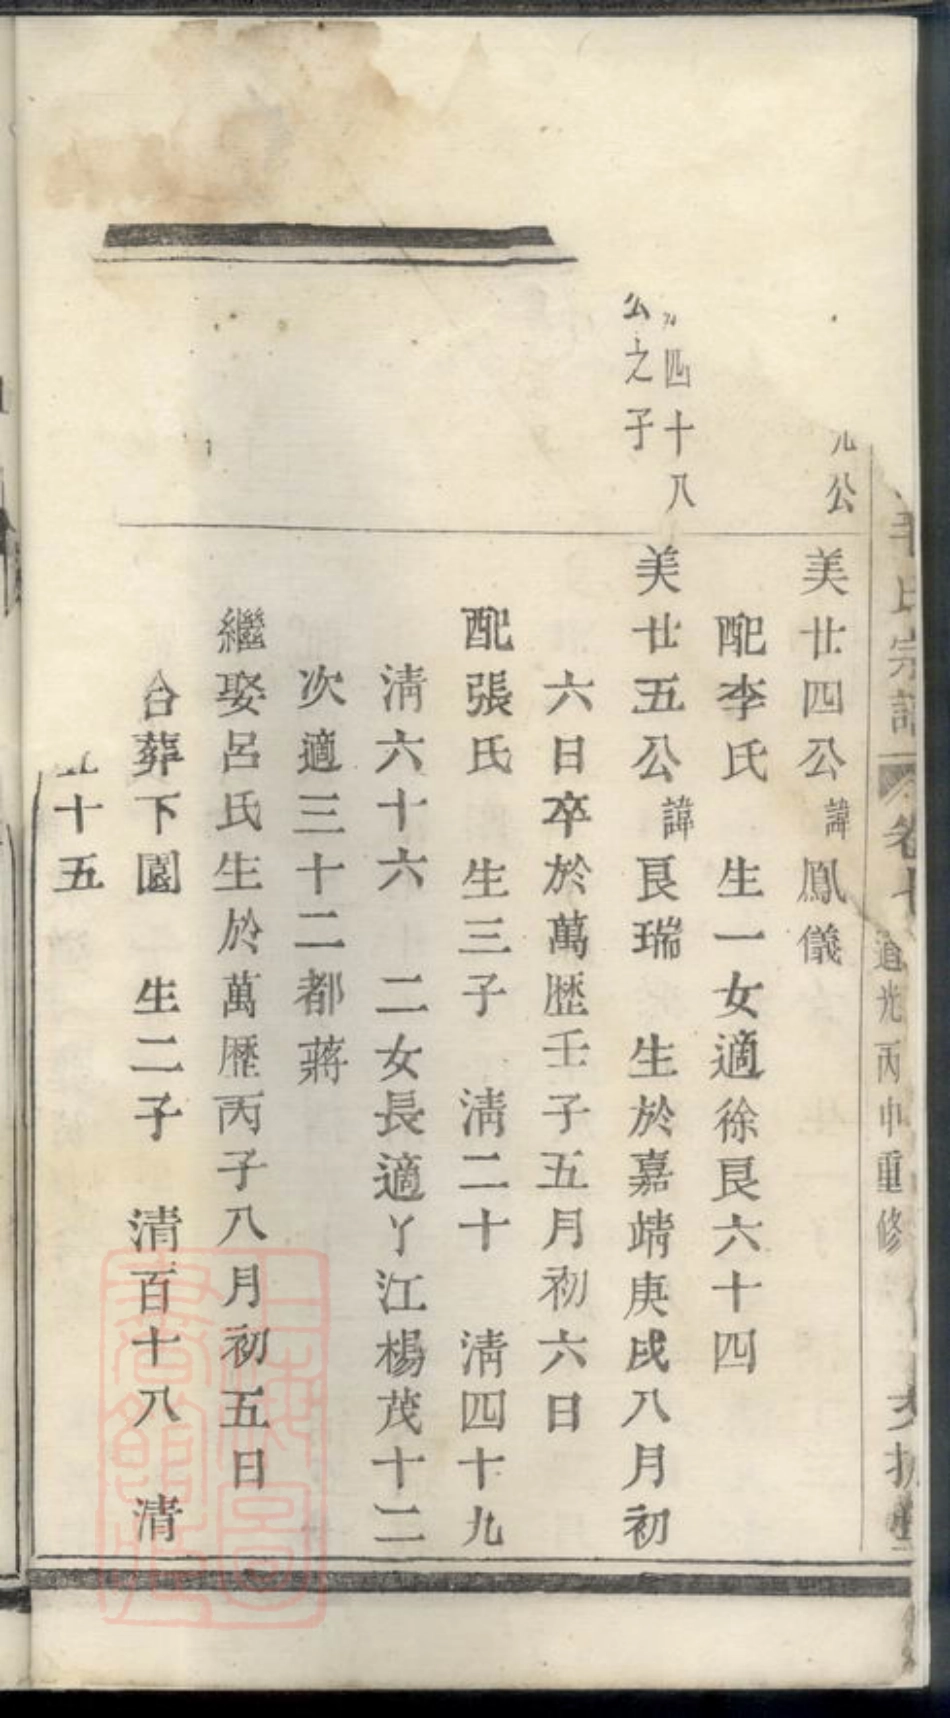 氏宗譜 卷七 道光丙申重修
公
美廿四公諱鳳儀
配李氏 生一女適徐良六十四
四十八
公之子
美廿五公諱良瑞 生於嘉靖庚戌八月初
六日卒於萬歷壬子五月初六日
配張氏 生三子 清二十 清四十九
清六十六 二女長適丫江楊茂十二
次適三十二都蔣
繼娶呂氏生於萬歷丙子八月初五日
合葬下園 生二子 清百十八 清
十五
上海圖書館藏